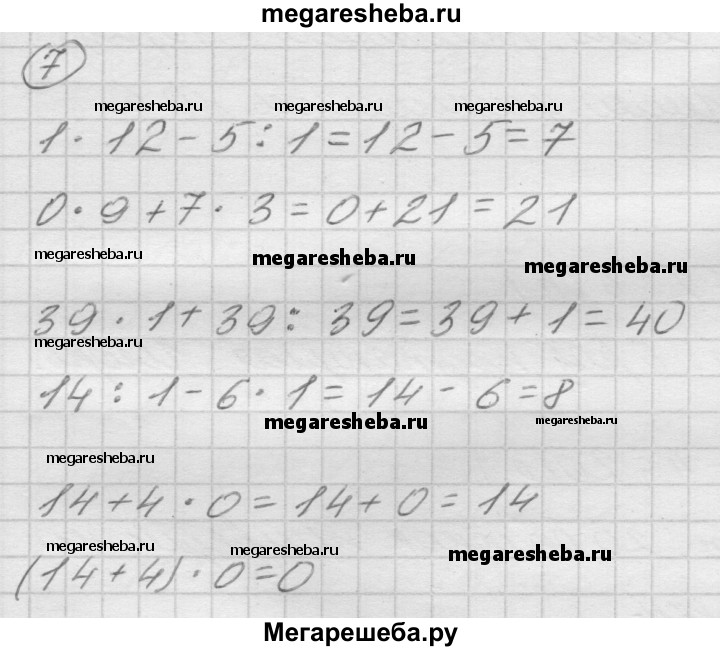 megaresheba.ru
7
megaresheba.ru megaresheba.ru megaresheba.ru
1 · 12 - 5 : 1 = 12 - 5 = 7
0 · 9 + 7 · 3 = 0 + 21 = 21
megaresheba.ru megaresheba.ru megaresheba.ru
39 · 1 + 39 : 39 = 39 + 1 = 40
megaresheba.ru
14 : 1 - 6 · 1 = 14 - 6 = 8
megaresheba.ru megaresheba.ru
megaresheba.ru
14 + 4 · 0 = 14 + 0 = 14
megaresheba.ru megaresheba.ru megaresheba.ru
(14 + 4) · 0 = 0
Мегарешеба.ру